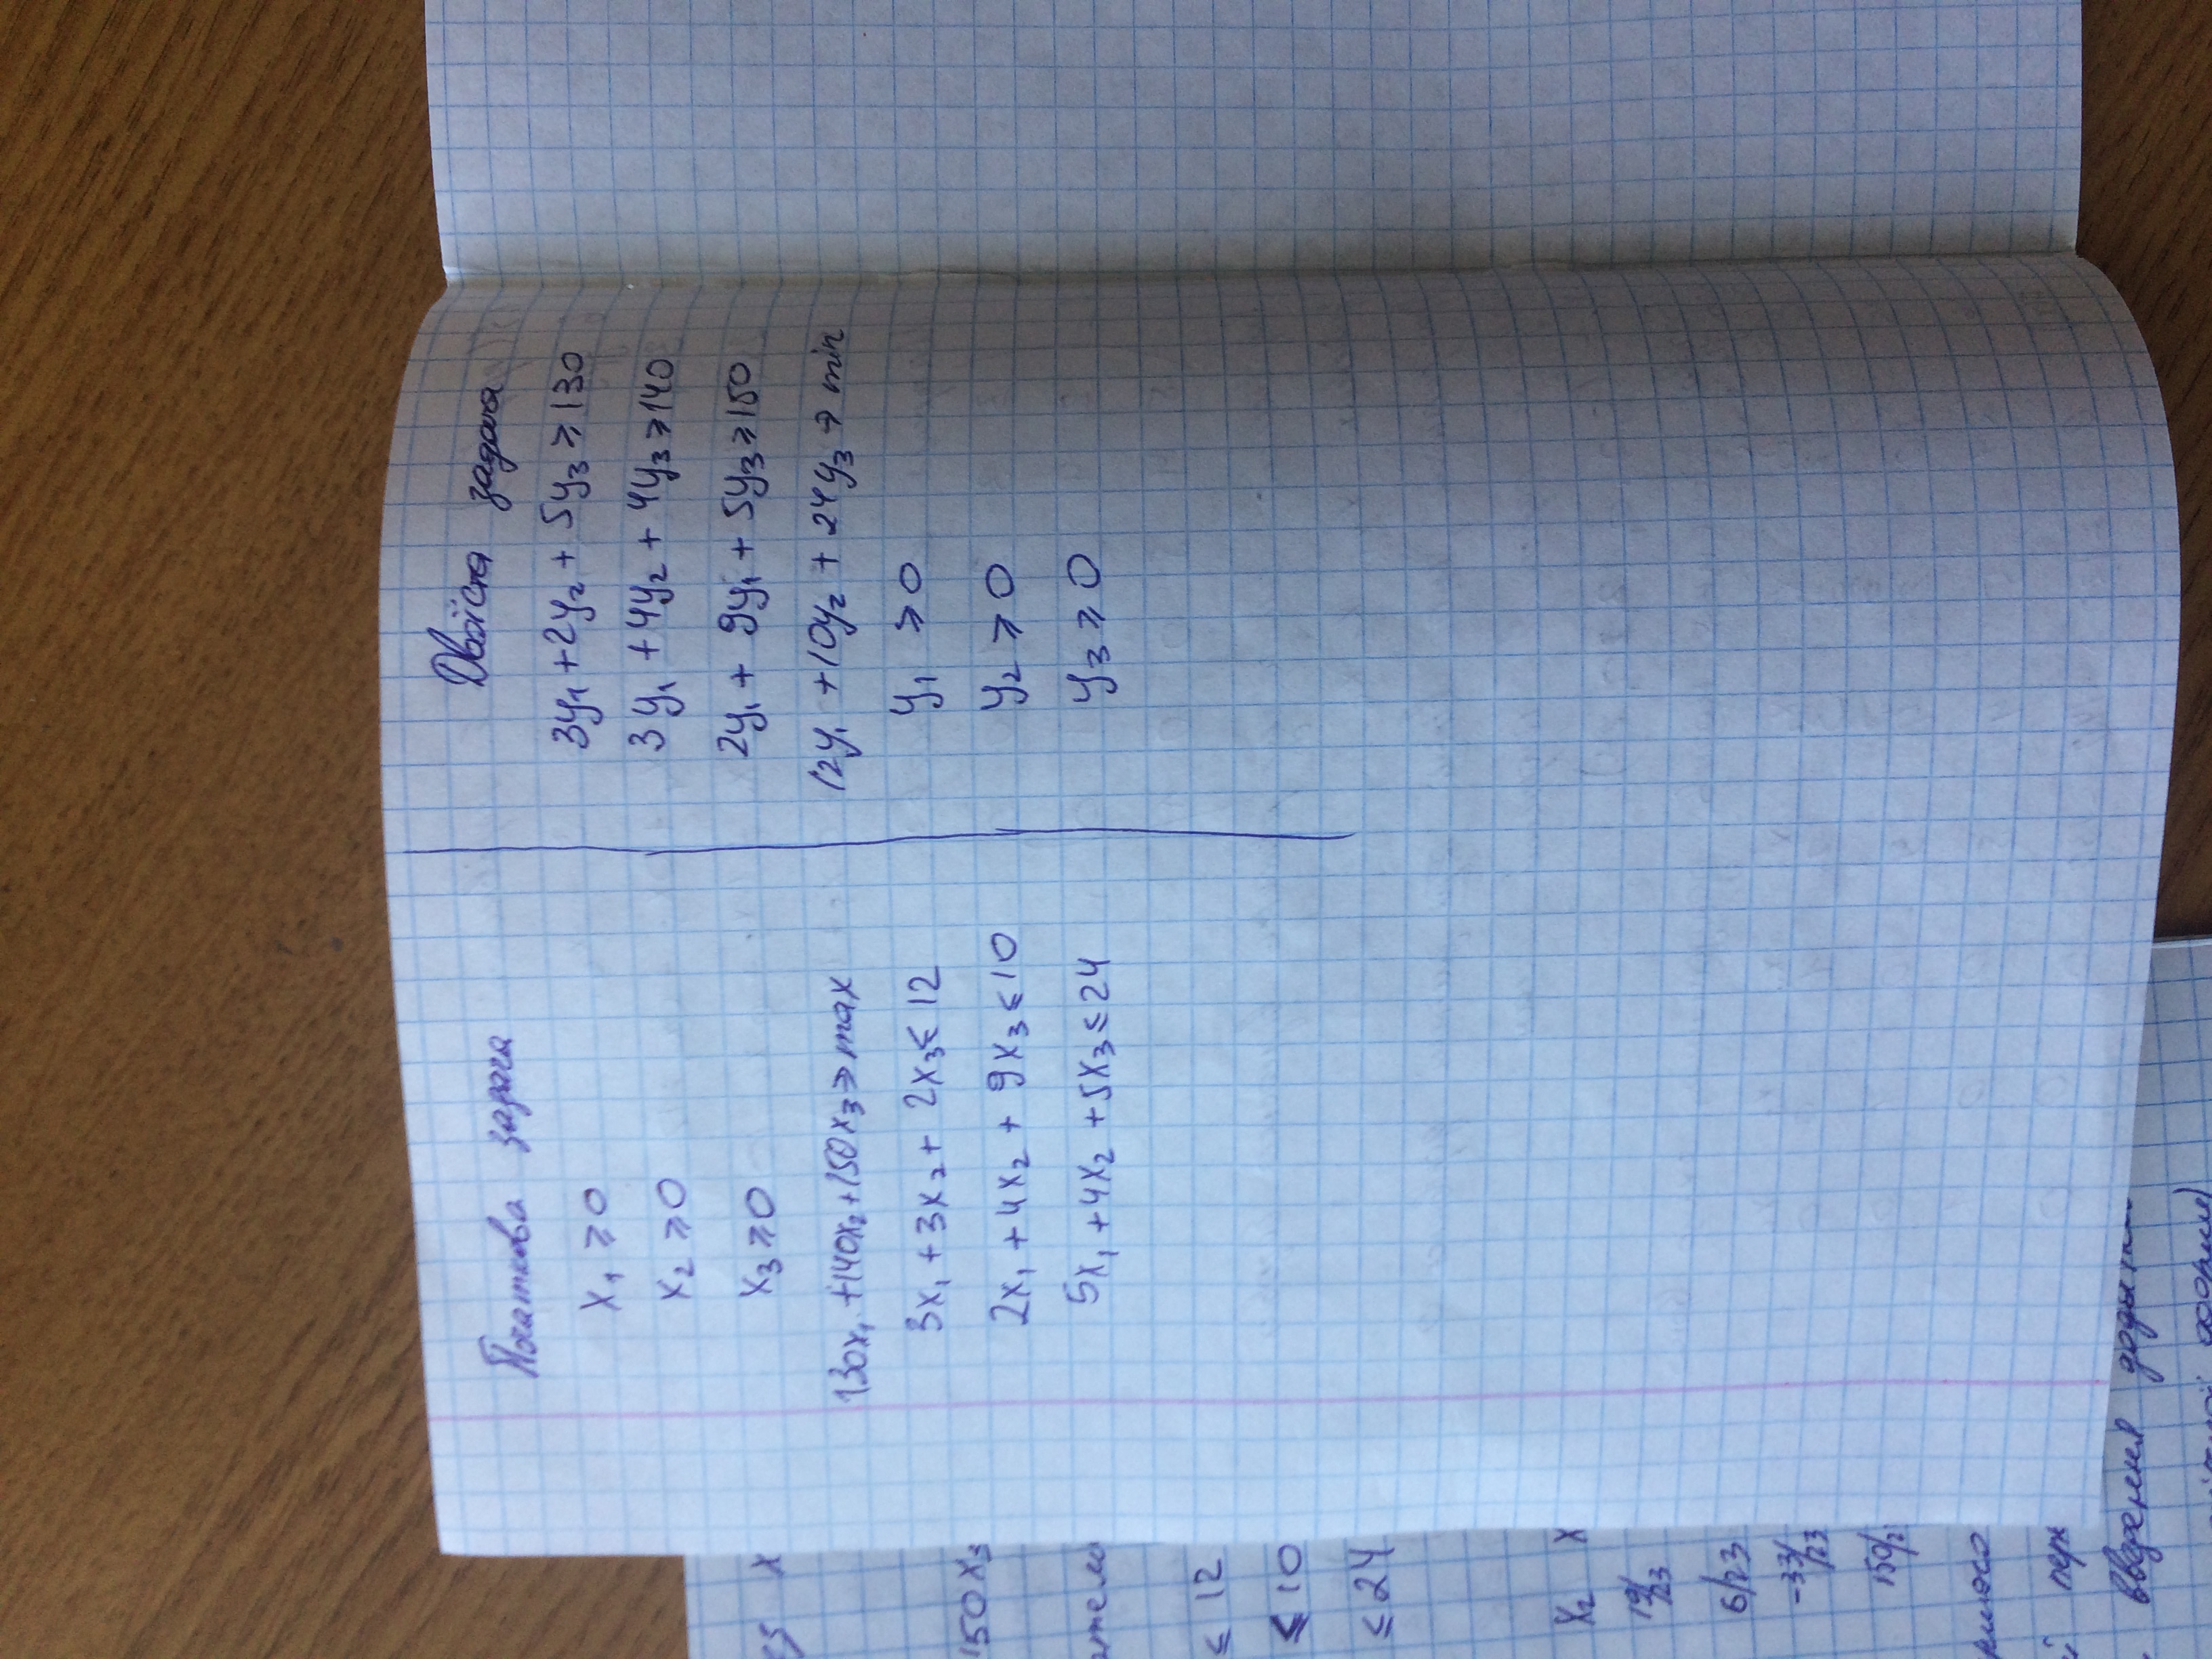 Початкова задача
x₁ ⩾ 0
x₂ ⩾ 0
x₃ ⩾ 0
130x₁ + 140x₂ + 150x₃ → max
3x₁ + 3x₂ + 2x₃ ⩽ 12
2x₁ + 4x₂ + 9x₃ ⩽ 10
5x₁ + 4x₂ + 5x₃ ⩽ 24
Двоїста задача
3y₁ + 2y₂ + 5y₃ ⩾ 130
3y₁ + 4y₂ + 4y₃ ⩾ 140
2y₁ + 9y₁ + 5y₃ ⩾ 150
12y₁ + 10y₂ + 24y₃ → min
y₁ ⩾ 0
y₂ ⩾ 0
y₃ ⩾ 0
x
150x₃
⩽ 12
⩽ 10
⩽ 24
x₂ x
19/23
6/23
-33/23
150/2
введення